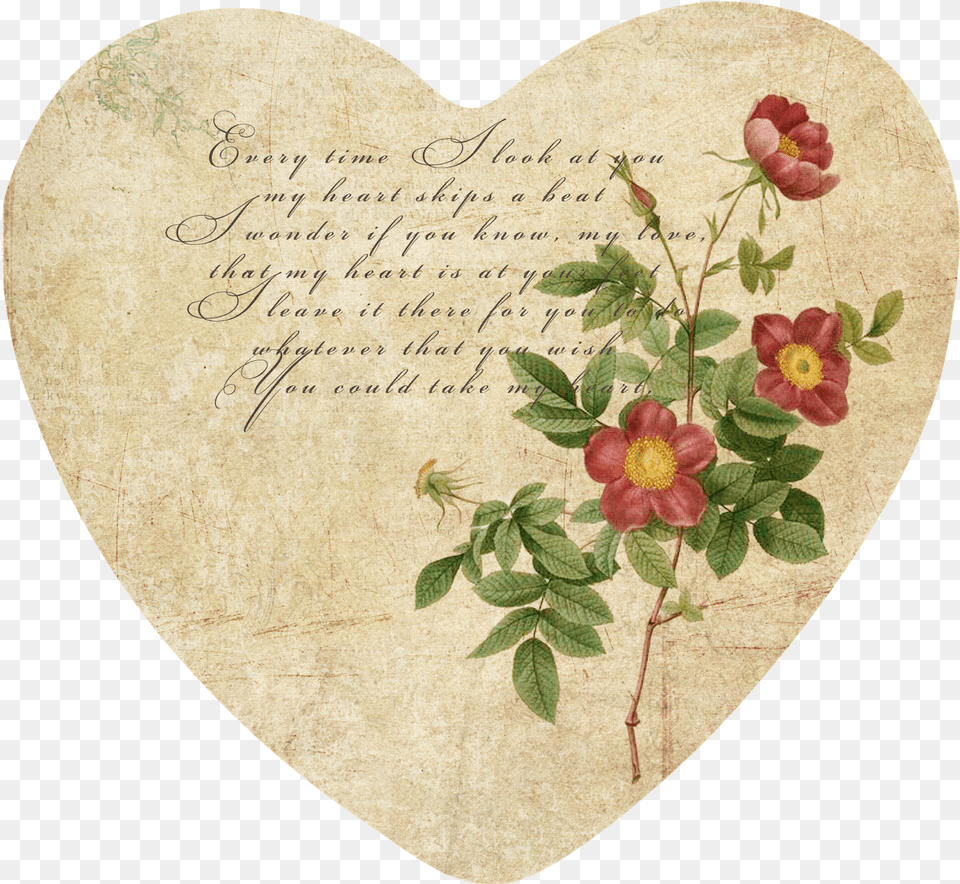 Every time I look at you
my heart skips a beat
I wonder if you know, my love,
that my heart is at your feet
I leave it there for you to do
whatever that you wish
You could take my heart,